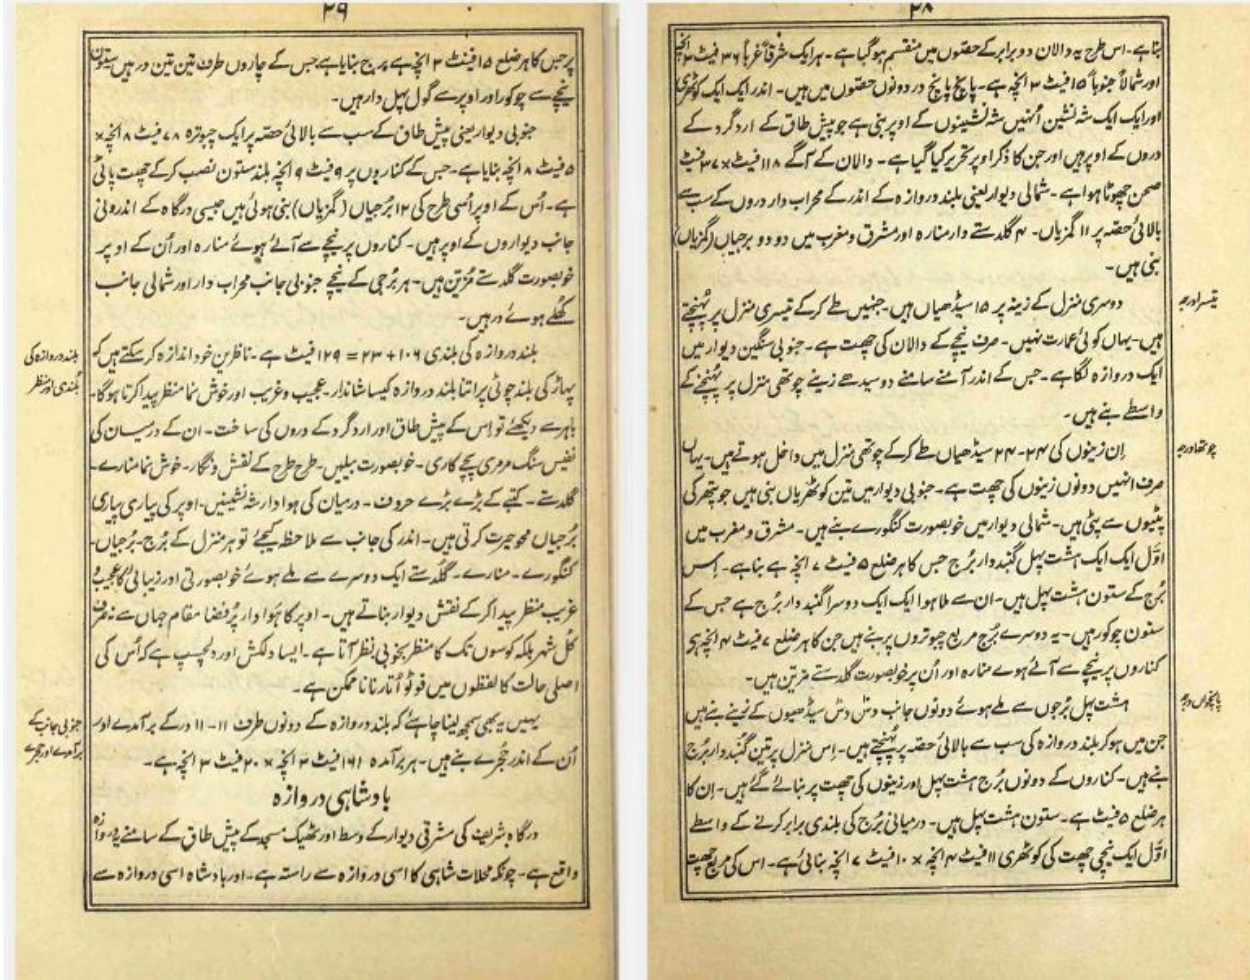 ۲۸
بنا ہے۔ اس طرح یہ دالان دو برابر کے حصتوں میں منقسم ہوگیا ہے۔ ہر ایک شرقاً غرباً ۳۶ فیٹ ۳ انچہ
اور شمالاً جنوباً ۱۵ فیٹ ۳ انچہ ہے۔ پانچ پانچ در دونوں حصتوں میں ہیں۔ اندر ایک ایک کوٹھری
اور ایک ایک شہ نشین اُنہیں شہ نشینوں کے اوپر بنی ہے جو پیش طاق کے اردگرد کے
دروں کے اوپر ہیں اور جن کا ذکر اوپر تحریر کیا گیا ہے۔ دالان کے آگے ۱۱۸ فیٹ × ۳۷ فیٹ
صحن چھوٹا ہوا ہے۔ شمالی دیوار یعنی بلند دروازہ کے اندر کے محراب دار دروں کے سب سے
بالائی حصتہ پر ۱۱ گمزیاں۔ ۴ گلدستے دار منارہ اور مشرق و مغرب میں دو دو برجیاں (گمزیاں)
بنی ہیں۔
تیسرا درجہ
دوسری منزل کے زینہ پر ۱۵ سیڑھیاں ہیں۔ جنہیں طے کر کے تیسری منزل پر پُہنچتے
ہیں۔ یہاں کوئی عمارت نہیں۔ صرف نیچے کے دالان کی چھت ہے۔ جنوبی سنگین دیوار میں
ایک دروازہ لگا ہے۔ جس کے اندر آمنے سامنے دو سیدھے زینے چوتھی منزل پر پُہنچنے کے
واسطے بنے ہیں۔
چوتھا درجہ
اِن زینوں کی ۲۴-۲۴ سیڑھیاں طے کر کے چوتھی منزل میں داخل ہوتے ہیں۔ یہاں
صرف انہیں دونوں زینوں کی چھت ہے۔ جنوبی دیوار میں تین کوٹھریاں بنی ہیں جو پتھر کی
پٹیوں سے پٹی ہیں۔ شمالی دیوار میں خوبصورت کنگورے بنے ہیں۔ مشرق و مغرب میں
اوّل ایک ایک ہشت پہل گنبد دار بُرج جس کا ہر ضلع ۵ فیٹ ۷ انچہ ہے بنا ہے۔ اِس
بُرج کے ستون ہشت پہل ہیں۔ ان سے ملا ہوا ایک ایک دوسرا گنبد دار بُرج ہے جس کے
ستون چوکور ہیں۔ یہ دوسرے بُرج مربع چبوتروں پر بنے ہیں جن کا ہر ضلع ۷ فیٹ ۴ انچہ ہے
کناروں پر نیچے سے آئے ہوے منارہ اور اُن پر خوبصورت گلدستے مزیّن ہیں۔
پانچواں درجہ
ہشت پہل بُرجوں سے ملے ہوئے دونوں جانب دس دس سیڑھیوں کے زینے بنے ہیں
جن میں ہو کر بلند دروازہ کی سب سے بالائی حصتہ پر پُہنچتے ہیں۔ اِس منزل پر تین گنبد دار بُرج
بنے ہیں۔ کناروں کے دونوں بُرج ہشت پہل اور زینوں کی چھت پر بنائے گئے ہیں۔ اِن کا
ہر ضلع ۵ فیٹ ہے۔ ستون ہشت پہل ہیں۔ درمیانی بُرج کی بلندی برابر کرنے کے واسطے
اوّل ایک نیچی چھت کی کوٹھری ۱۱ فیٹ ۴ انچہ × ۱۰ فیٹ ۷ انچہ بنائی ہے۔ اس کی مربع چھت
۲۹
پر جس کا ہر ضلع ۱۵ فیٹ ۳ انچہ ہے بُرج بنایا ہے جس کے چاروں طرف تین تین در ہیں ستون
نیچے سے چوکور اور اوپر سے گول پہل دار ہیں۔
جنوبی دیوار یعنی پیش طاق کے سب سے بالائی حصتہ پر ایک چبوترہ ۷۸ فیٹ ۸ انچہ ×
۵ فیٹ ۸ انچہ بنایا ہے۔ جس کے کناروں پر ۹ فیٹ ۹ انچہ بلند ستون نصب کر کے چھت پاٹی
ہے۔ اُس کے اوپر اُسی طرح کی ۱۲ بُرجیاں (گمزیاں) بنی ہوئی ہیں جیسی درگاہ کے اندرونی
جانب دیواروں کے اوپر ہیں۔ کناروں پر نیچے سے آئے ہوئے منارہ اور اُن کے اوپر
خوبصورت گلدستے مُزیّن ہیں۔ ہر بُرجی کے نیچے جنوبی جانب محراب دار اور شمالی جانب
کھُلے ہوئے در ہیں۔
بلند دروازہ کی بُلندی اور منظر
بلند دروازہ کی بلندی ۱۰۶ + ۲۳ = ۱۲۹ فیٹ ہے۔ ناظرین خود اندازہ کر سکتے ہیں کہ
پہاڑ کی بلند چوٹی پر اتنا بلند دروازہ کیسا شاندار۔ عجیب و غریب اور خوش نما منظر پیدا کرتا ہوگا۔
باہر سے دیکھئے تو اس کے پیش طاق اور اردگرد کے دروں کی ساخت۔ ان کے درمیان کی
نفیس سنگ مرمری پچے کاری۔ خوبصورت بیلیں۔ طرح طرح کے نقش و نگار۔ خوش نما منارے۔
گلدستے۔ کتبے کے بڑے بڑے حروف۔ درمیان کی ہوادار شہ نشینیں۔ اوپر کی پیاری پیاری
بُرجیاں محوِ حیرت کرتی ہیں۔ اندر کی جانب سے ملاحظہ کیجئے تو ہر منزل کے بُرج۔ بُرجیاں۔
کنگورے۔ منارے۔ گلدستے ایک دوسرے سے ملے ہوئے خوبصورتی اور زیبائی کا عجیب و
غریب منظر پیدا کر کے نقش دیوار بناتے ہیں۔ اوپر کا ہوادار پُرفضا مقام جہاں سے نہ صرف
کُل شہر بلکہ کوسوں تک کا منظر بخوبی نظر آتا ہے۔ ایسا دلکش اور دلچسپ ہے کہ اُس کی
اصلی حالت کا لفظوں میں فوٹو اُتارنا ناممکن ہے۔
جنوبی جانب کے برآمدے اور حجرے
یہیں یہ بھی سمجھ لینا چاہئے کہ بلند دروازہ کے دونوں طرف ۱۱-۱۱ در کے برآمدے اور
اُن کے اندر حُجرے بنے ہیں۔ ہر برآمدہ ۱۶۱ فیٹ ۲ انچہ × ۲۰ فیٹ ۳ انچہ ہے۔
بادشاہی دروازہ
درگاہ شریف کی مشرقی دیوار کے وسط اور ٹھیک مسجد کے پیش طاق کے سامنے یہ دروازہ
واقع ہے۔ چونکہ محلات شاہی کا اسی دروازہ سے راستہ ہے۔ اور بادشاہ اسی دروازہ سے